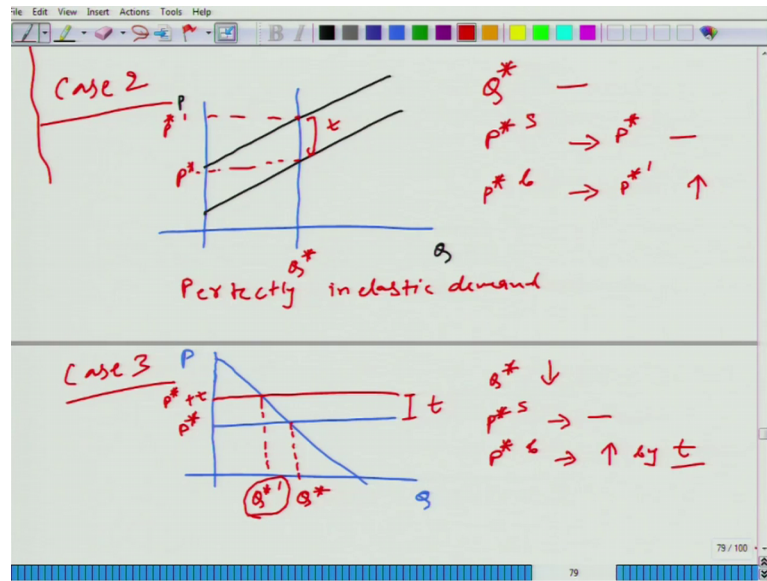 File Edit View Insert Actions Tools Help
B I
Case 2
P
P*'
t
P*
Q*
Q
Q* —
P* s → P* —
P* b → P*' ↑
Perfectly inelastic demand
Case 3
P
P*+t
P*
t
Q*'
Q*
Q
Q* ↓
P* s → —
P* b → ↑ by t
79 / 100
79